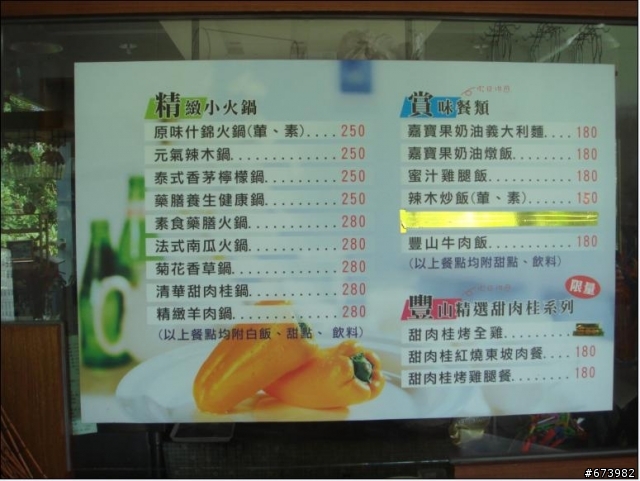 精緻小火鍋
原味什錦火鍋(葷、素)....250
元氣辣木鍋..............250
泰式香茅檸檬鍋..........250
藥膳養生健康鍋..........250
素食藥膳火鍋............280
法式南瓜火鍋............280
菊花香草鍋..............280
清華甜肉桂鍋............280
精緻羊肉鍋..............280
(以上餐點均附白飯、甜點、飲料)
賞味餐類
嘉寶果奶油義大利麵....180
嘉寶果奶油燉飯........180
蜜汁雞腿飯............180
辣木炒飯(葷、素)....150
豐山牛肉飯............180
(以上餐點均附甜點、飲料)
限量
豐山精選甜肉桂系列
甜肉桂烤全雞..........
甜肉桂紅燒東坡肉餐....180
甜肉桂烤雞腿餐........180
#673982